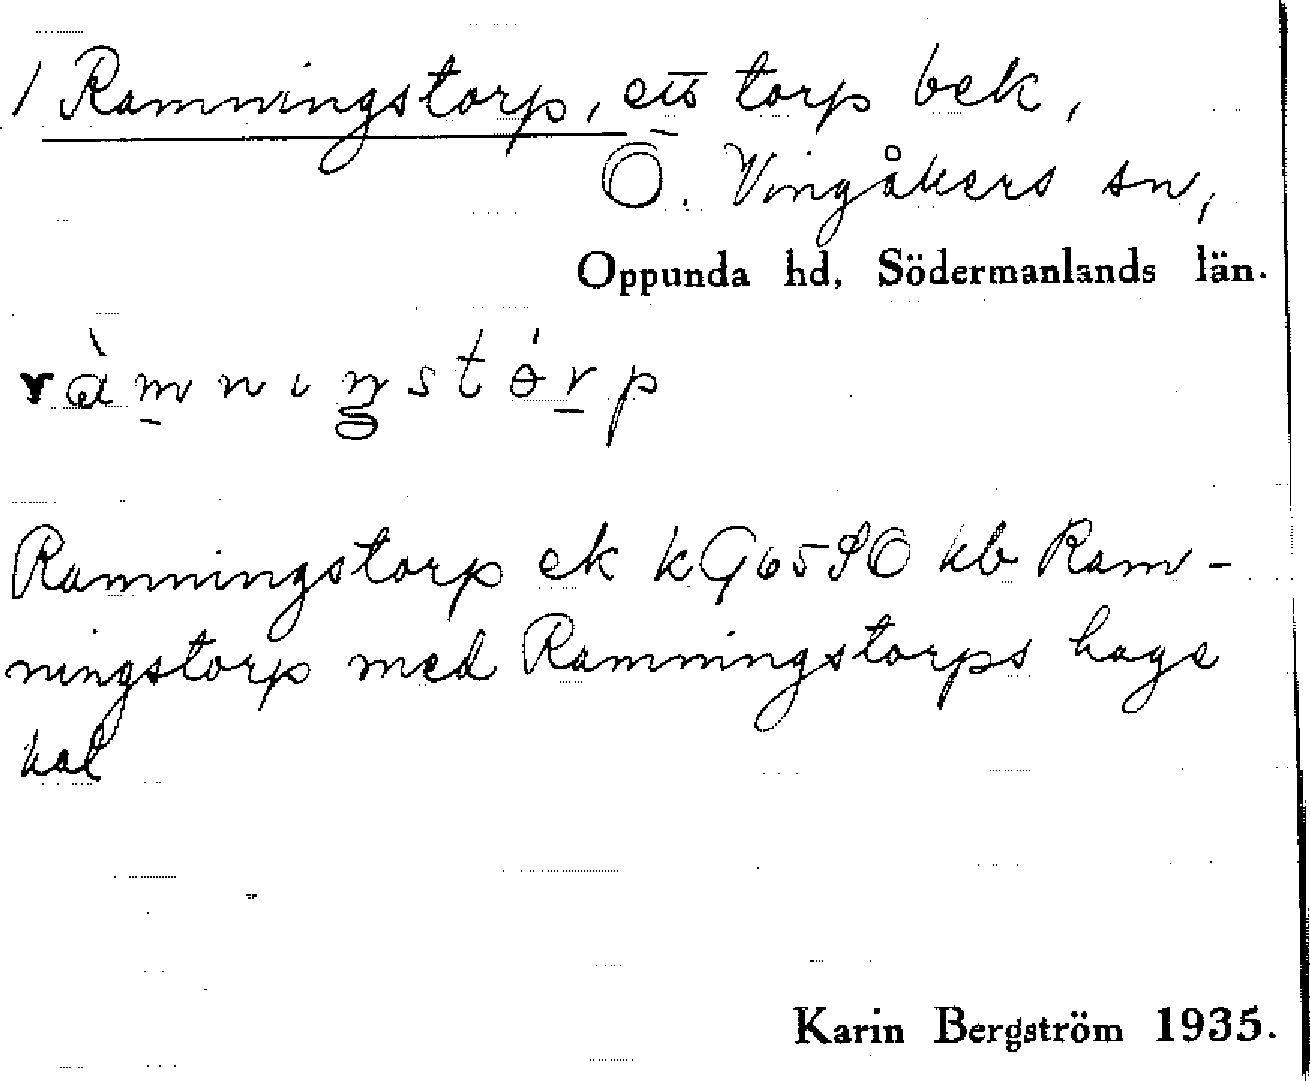 1 Ramningstorp, ett torp bek,
Ö. Vingåkers sn,
Oppunda hd, Södermanlands län.
ràmnıŋstórp
Ramningstorp ek kG6590 kb Ram-
ningstorp med Ramningstorps hage
kal
Karin Bergström 1935.